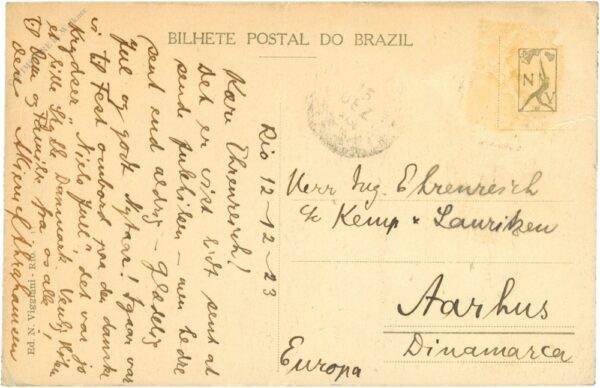 BILHETE POSTAL DO BRAZIL
N V
15
DEZ
Rio 12-12-23
Kære Ehrenreich!
Det er vist lidt sent at
sende Julehilsen – men bedre
sent end aldrig – Glædelig
Jul og godt Nytaar! Igaar var
vi til Fest ombord paa den danske
Krydser "Niels Juel", det var jo
et lille Stykke Danmark. Venlig Hilsen
til Dem og Familie fra os alle!
Deres
Herr Ing. Ehrenreich
c/o Kemp & Lauritzen
Aarhus
Dinamarca
Europa
Ed. N. Viggiani - Rio